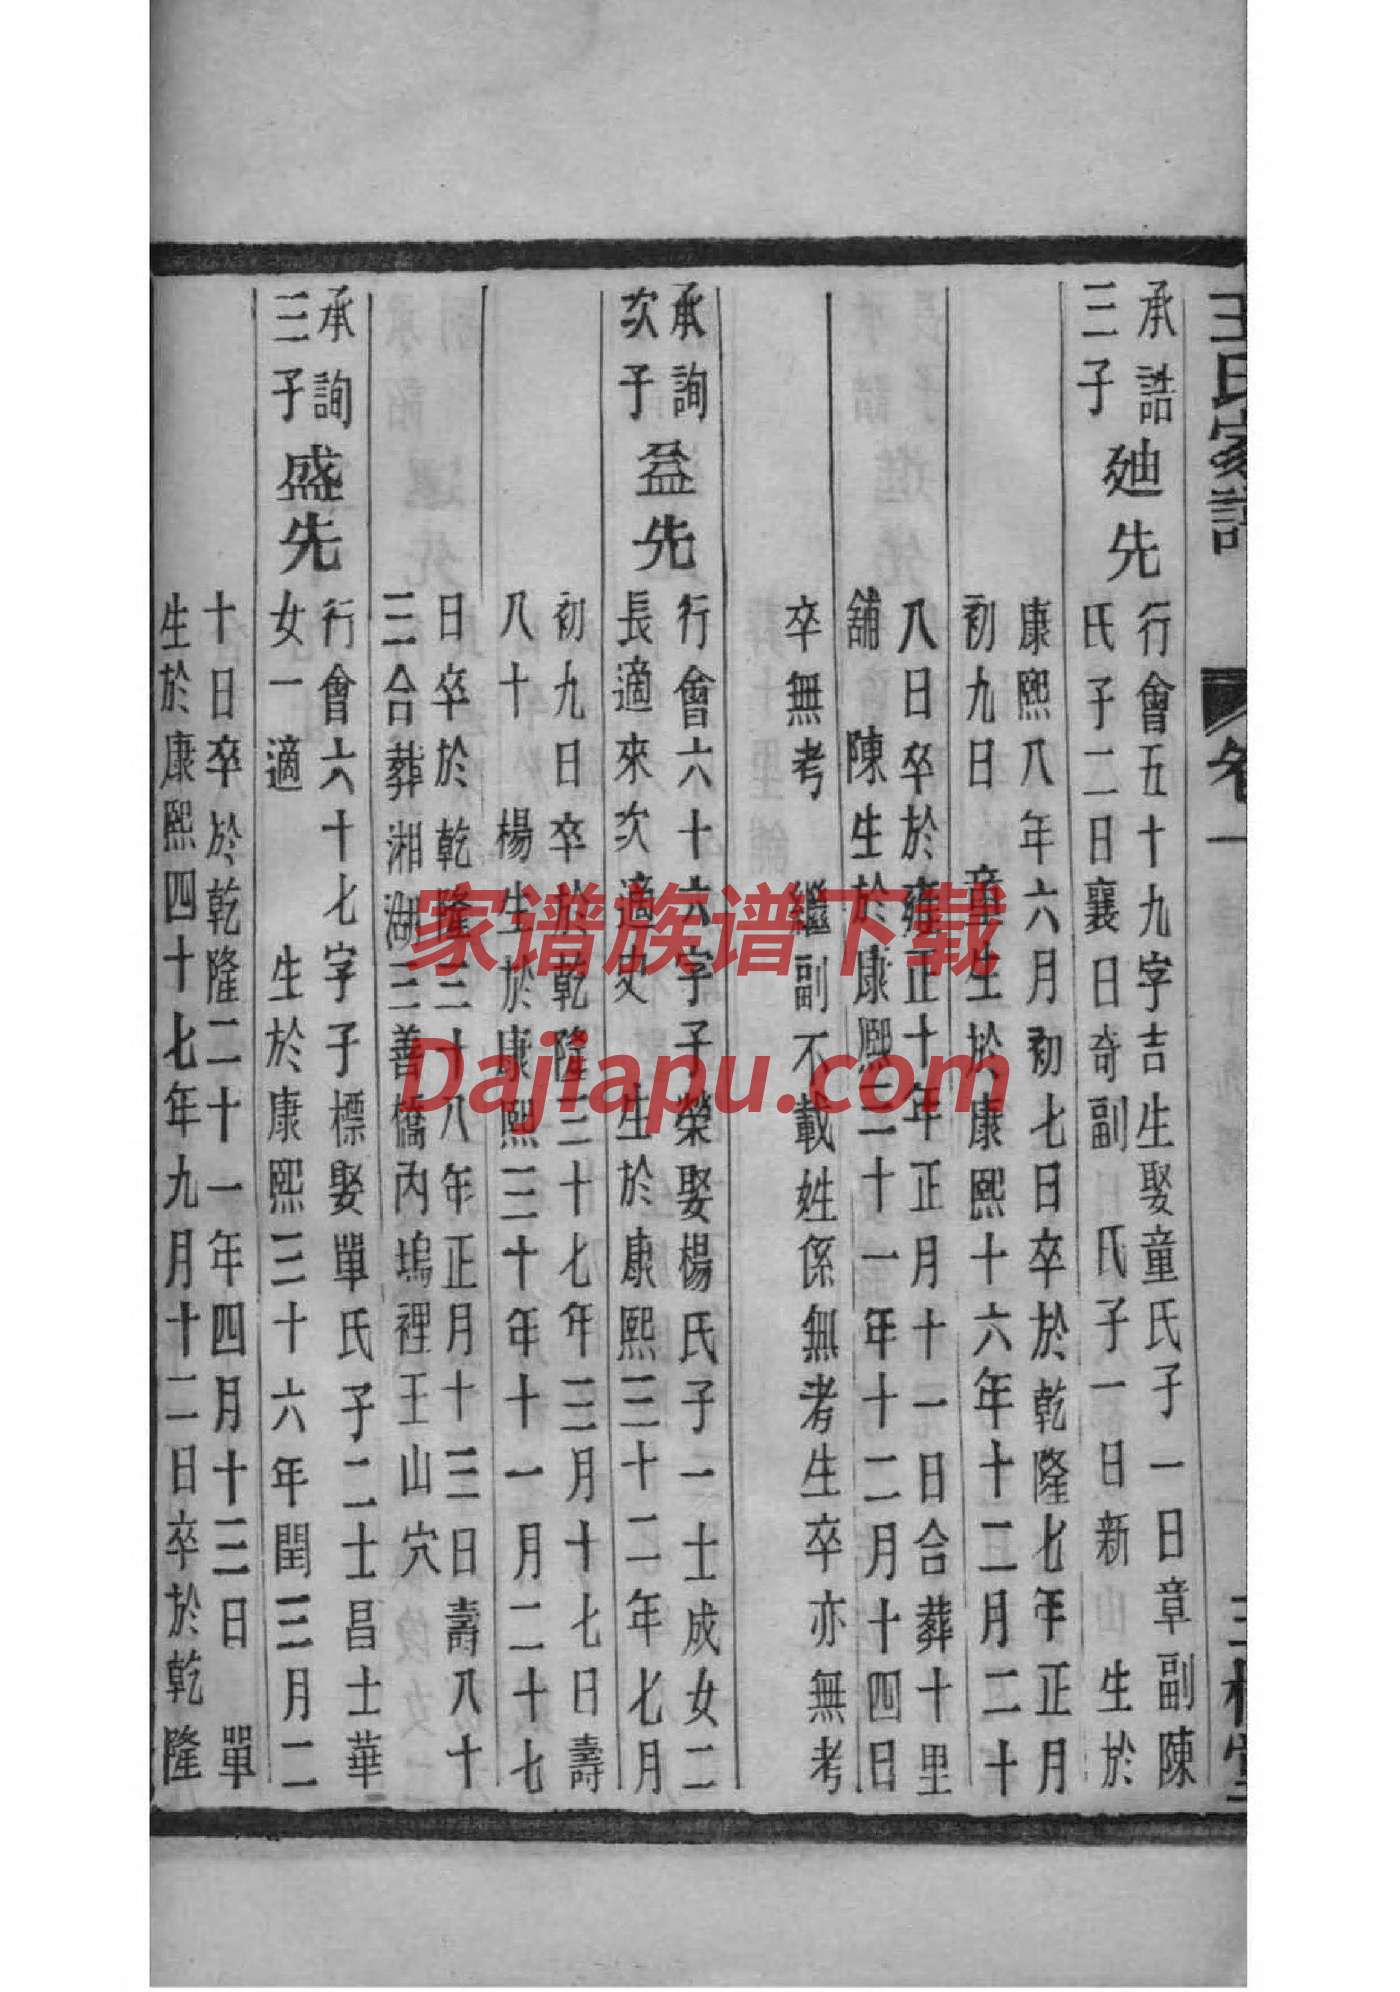 王氏家譜
卷一
三槐堂
承誥
三子
廸先
行會五十九字吉生娶童氏子一曰章副陳
氏子二曰襄曰奇副 氏子一曰新 生於
康熙八年六月初七日卒於乾隆七年正月
初九日 童生於康熙十六年十二月二十
八日卒於雍正十年正月十一日合葬十里
舖 陳生於康熙二十一年十二月十四日
卒無考 繼副不載姓係無考生卒亦無考
承詢
次子
益先
行會六十六字子榮娶楊氏子一士成女二
長適來次適史 生於康熙三十二年七月
初九日卒於乾隆三十七年三月十七日壽
八十 楊生於康熙三十年十一月二十七
日卒於乾隆三十八年正月十三日壽八十
三合葬湘湖三善橋內塢裡王山穴
承詢
三子
盛先
行會六十七字子標娶單氏子二士昌士華
女一適 生於康熙三十六年閏三月二
十日卒於乾隆二十一年四月十三日 單
生於康熙四十七年九月十二日卒於乾隆
家谱族谱下载
Dajiapu.com